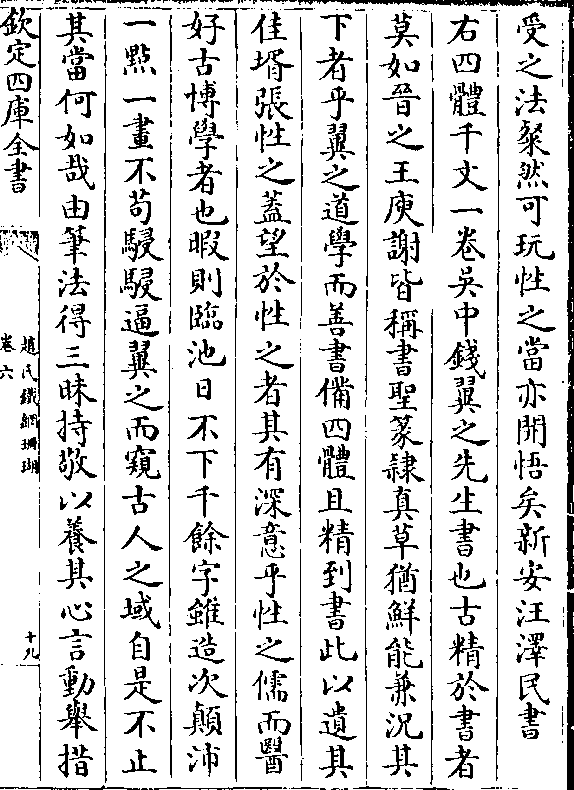 受之法粲然可玩性之當亦開悟矣新安汪澤民書
右四體千文一卷吳中錢翼之先生書也古精於書者
莫如晉之王庾謝皆稱書聖篆隸真草猶鮮能兼況其
下者乎翼之道學而善書備四體且精到書此以遺其
佳壻張性之蓋望於性之者其有深意乎性之儒而醫
好古博學者也暇則臨池日不下千餘字雖造次顛沛
一㸃一畫不苟駸駸逼翼之而窺古人之域自是不止
其當何如哉由筆法得三昧持敬以養其心言動舉措
欽定四庫全書
趙氏鐵網珊瑚
卷六
十九